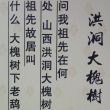 洪洞大槐樹
问我祖先在何
处山西洪洞大槐树
祖先故居叫
什么大槐树下老鸹